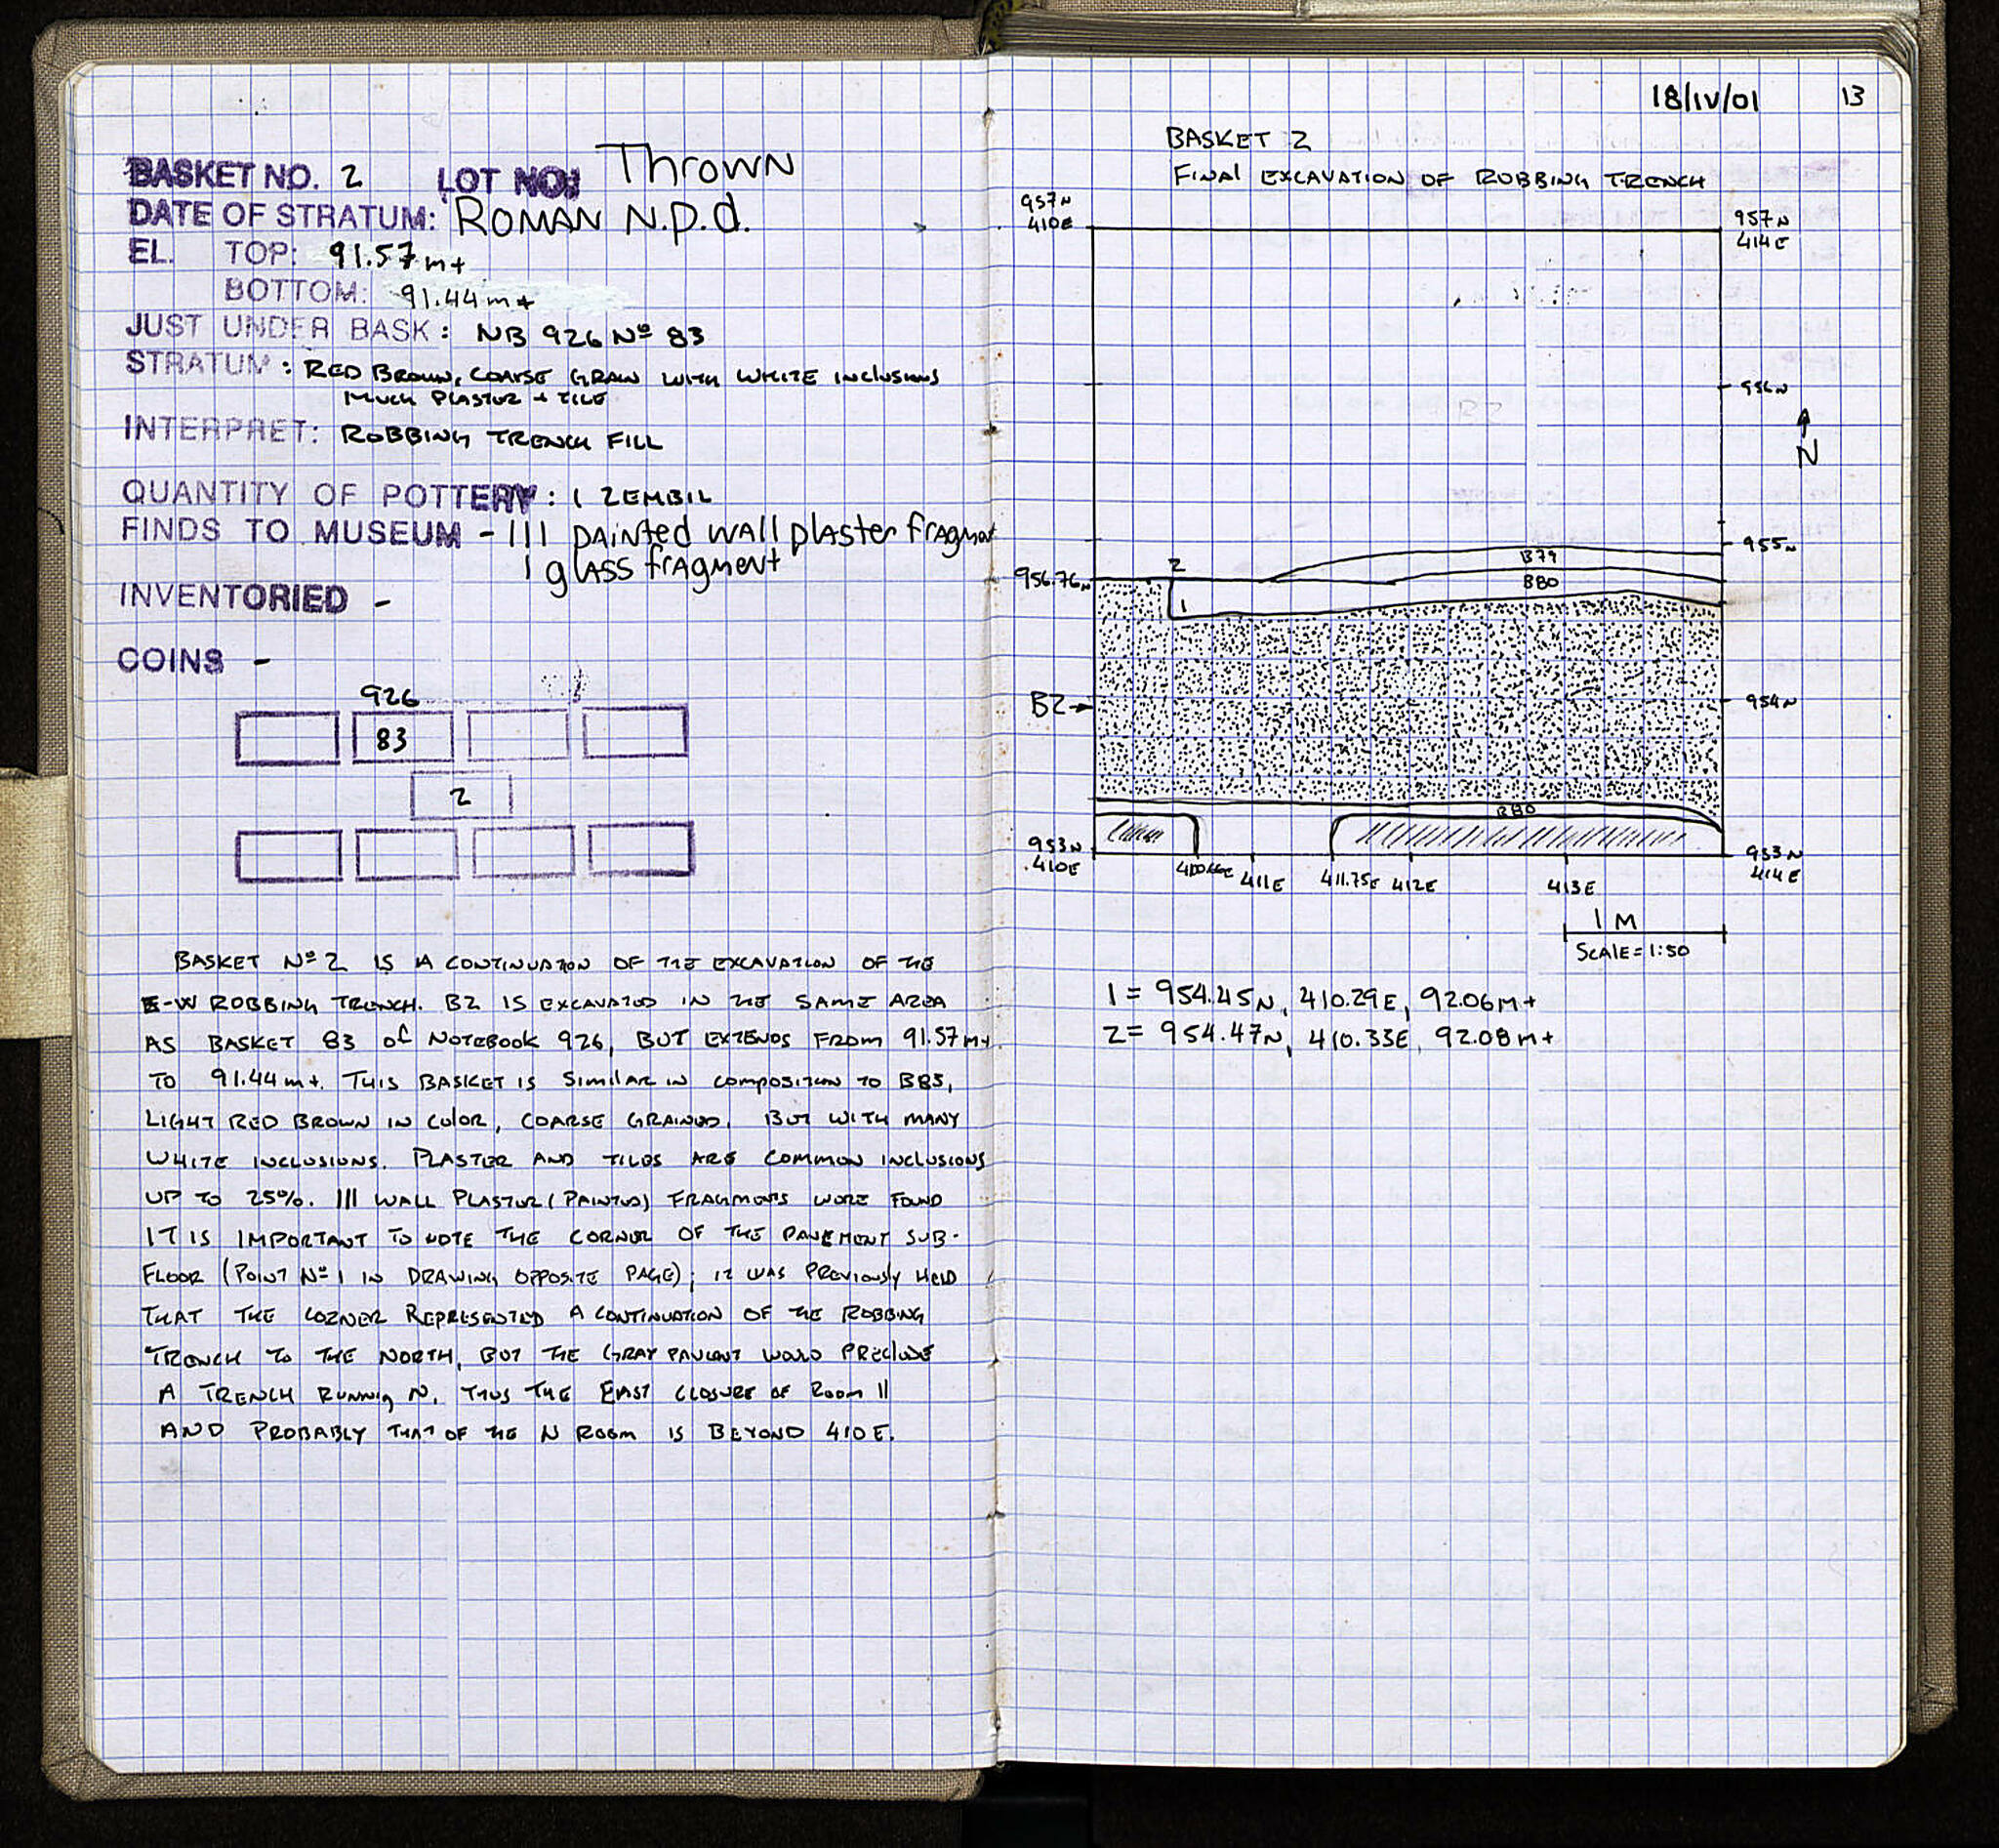 BASKET NO. 2 LOT NO: Thrown
DATE OF STRATUM: ROMAN N.P.d.
EL. TOP: 91.57 m+
BOTTOM: 91.44 m+
JUST UNDER BASK: NB 926 Nº 83
STRATUM: RED BROWN, COARSE GRAIN WITH WHITE INCLUSIONS
MUCH PLASTER + TILE
INTERPRET: ROBBING TRENCH FILL
QUANTITY OF POTTERY: 1 ZEMBIL
FINDS TO MUSEUM - 111 PAINTED WALL PLASTER FRAGMENT
1 GLASS FRAGMENT
INVENTORIED -
COINS -
926
83
2
BASKET Nº 2 IS A CONTINUATION OF THE EXCAVATION OF THE
E-W ROBBING TRENCH. B2 IS EXCAVATED IN THE SAME AREA
AS BASKET 83 of NOTEBOOK 926, BUT EXTENDS FROM 91.57m+
TO 91.44m+. THIS BASKET IS SIMILAR IN COMPOSITION TO B83,
LIGHT RED BROWN IN COLOR, COARSE GRAINED, BUT WITH MANY
WHITE INCLUSIONS. PLASTER AND TILES ARE COMMON INCLUSIONS
UP TO 25%. 111 WALL PLASTER (PAINTED) FRAGMENTS WERE FOUND
IT IS IMPORTANT TO NOTE THE CORNER OF THE PAVEMENT SUB-
FLOOR (POINT Nº 1 IN DRAWING OPPOSITE PAGE); IT WAS PREVIOUSLY HELD
THAT THE CORNER REPRESENTED A CONTINUATION OF THE ROBBING
TRENCH TO THE NORTH, BUT THE GRAY PAVEMENT WOULD PRECLUDE
A TRENCH RUNNING N. THUS THE EAST CLOSURE OF ROOM 11
AND PROBABLY THAT OF THE N ROOM IS BEYOND 410E.
18/IV/01 13
BASKET 2
FINAL EXCAVATION OF ROBBING TRENCH
957N
410E
957N
414E
956N
N
955N
B79
2
956.76N
B80
1
B2
954N
B80
953N
410E
411E
411.75E
412E
413E
953N
414E
1 M
SCALE = 1:50
1 = 954.45N, 410.29E, 92.06M+
2 = 954.47N, 410.33E, 92.08M+